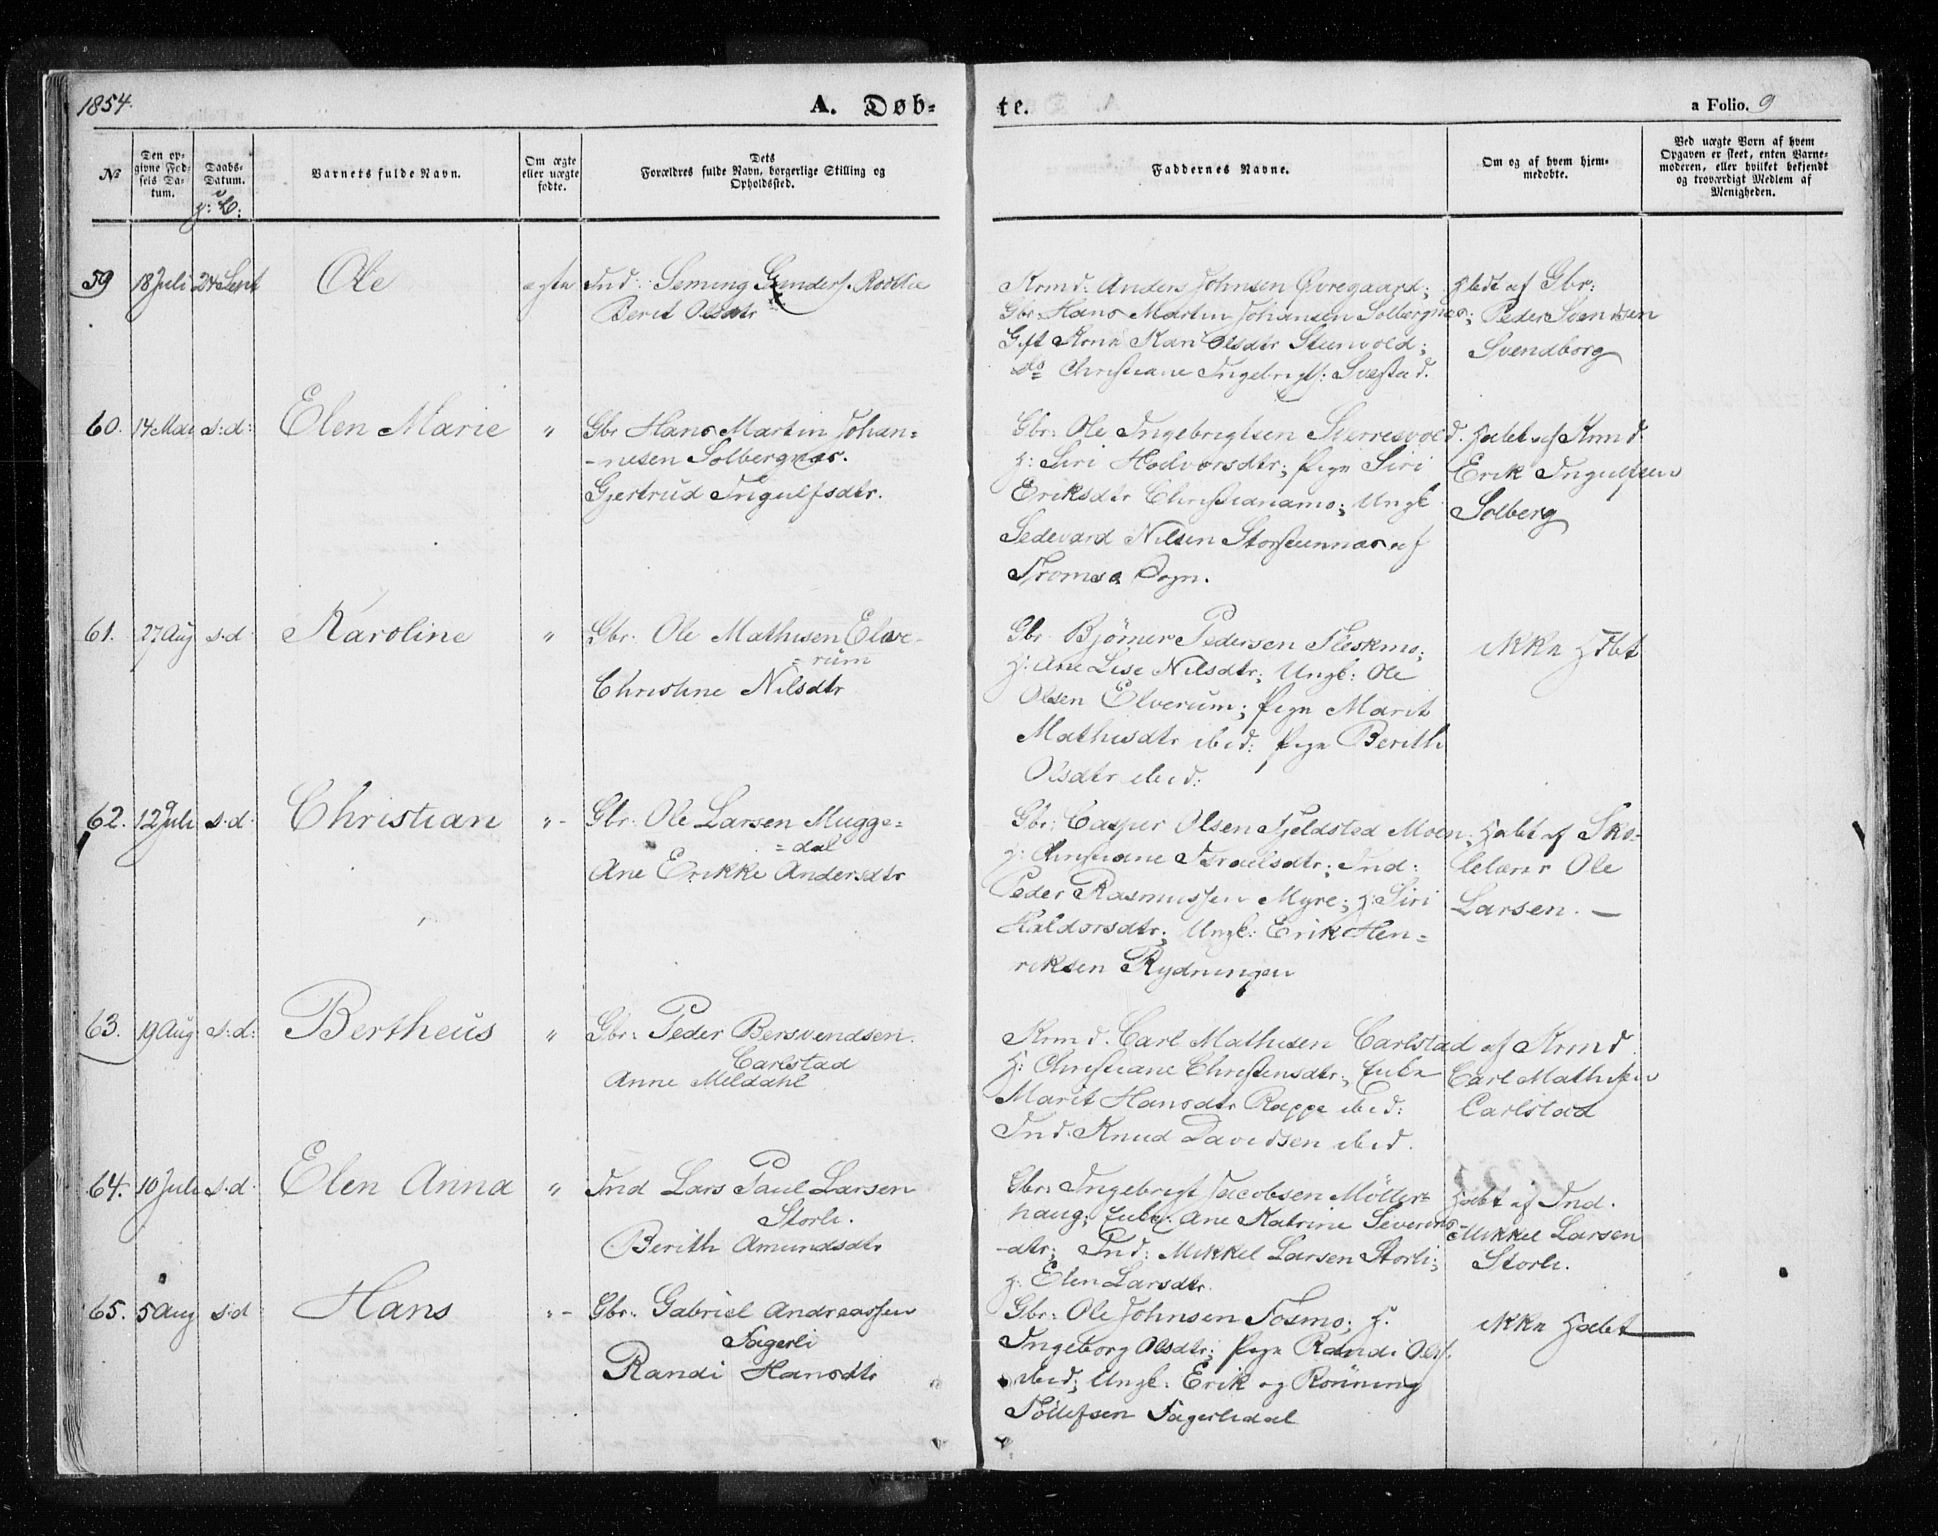 1854.
A. Døb-
te.
a Folio. 9
№
Den op-
givne Fød-
sels Da-
tum.
Daabs-
Datum.
Barnets fulde Navn.
Om ægte
eller uægte
fødte.
Dets
Forældres fulde Navn, borgerlige Stilling og
Opholdssted.
Faddernes Navne.
Om og af hvem hjem-
medøbte.
Ved uægte Børn af hvem
Opgaven er skeet, enten Barne-
moderen, eller hvilket bekjendt
og troværdigt Medlem af
Menigheden.
59 18 Juli 24 Sept Ole ægte Ind: Seming
Berit Olsdtr
Krmd: Anders Johnsen Øvregaard;
Gbr: Hans Martin Johansen Solbergnæs;
Gift Kone Kari Olsdtr Steenvold;
do Christiane Ingebrigts: Svestad.
Hdbt af Gbr:
Peder Svendsen
Svendborg
60. 14 Mai s:d: Elen Marie " Gbr Hans Martin Johan=
-nesen Solbergnæs.
Gjertrud Ingulfsdtr.
Gbr: Ole Ingebrigtsen Sverresvold.
H: Siri Hodvorsdtr; Pige Siri
Eriksdtr Christianamo; Ungk
Sedevard Nilsen Storsteennæs af
Tromsø Sogn.
Hdbt af Krmd
Erik Ingulfsen
Solberg
61. 27 Aug s.d. Karoline " Gbr. Ole Mathisen Elve-
-rum
Christine Nilsdtr
Gbr Bjørner Pedersen Fleskmo;
H: Ane Lise Nilsdtr; Ungk: Ole
Olsen Elverum; Pige Marit
Mathisdtr ibid: Pige Berith
Olsdtr ibid:
ikke Hdbt
62. 12 Juli s.d. Christian "- Gbr. Ole Larsen Mugge=
=dal
Ane Erikke Andersdtr
Gbr: Casper Olsen Fjeldstad Moen;
H: Christiane Israelsdtr; Ind:
Peder Rasmussen Myre; H: Siri
Haldorsdtr; Ungk: Erik Hen=
riksen Rydningen
Hdbt af Sko-
lelærer Ole
Larsen. —
63. 19 Aug s:d: Bertheus " Gbr: Peder Bersvendsen.
Carlstad
Anne Meldahl
Krmd. Carl Mathisen Carlstad
H: Christiane Christensdtr; Enke
Marit Hansdtr Rappe ibid:
Ind. Knud Davidsen ibid.
af Krmd
Carl Mathisen
Carlstad
64. 10 Juli s.d. Elen Anna " Ind Lars Paul Larsen
Storli.
Berith Amundsdtr
Gbr: Ingebrigt Jacobsen Möller=
haug; Enke: Ane Katrine Severins
-dtr; Ind: Mikkel Larsen Storli;
H: Elen Larsdtr.
Hdbt af Ind.
Mikkel Larsen
Storli.
65. 5 Aug s.d Hans "- Gbr: Gabriel Andreassen
Fagerli
Randi Hansdtr
Gbr: Ole Johnsen Fosmo; H.
Ingeborg Olsdtr; Pige Randi Ols.
ibid; Ungk: Erik og Rönning
Tollefsen Fagerlidal
ikke Hdbt